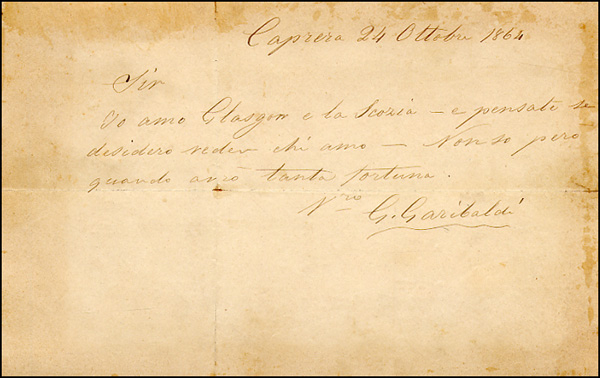 Caprera 24 Ottobre 1864
Sir
Io amo Glasgow e la Scozia – e pensate se
desidero veder chi amo – Non so però
quando avrò tanta fortuna.
Vro G. Garibaldi